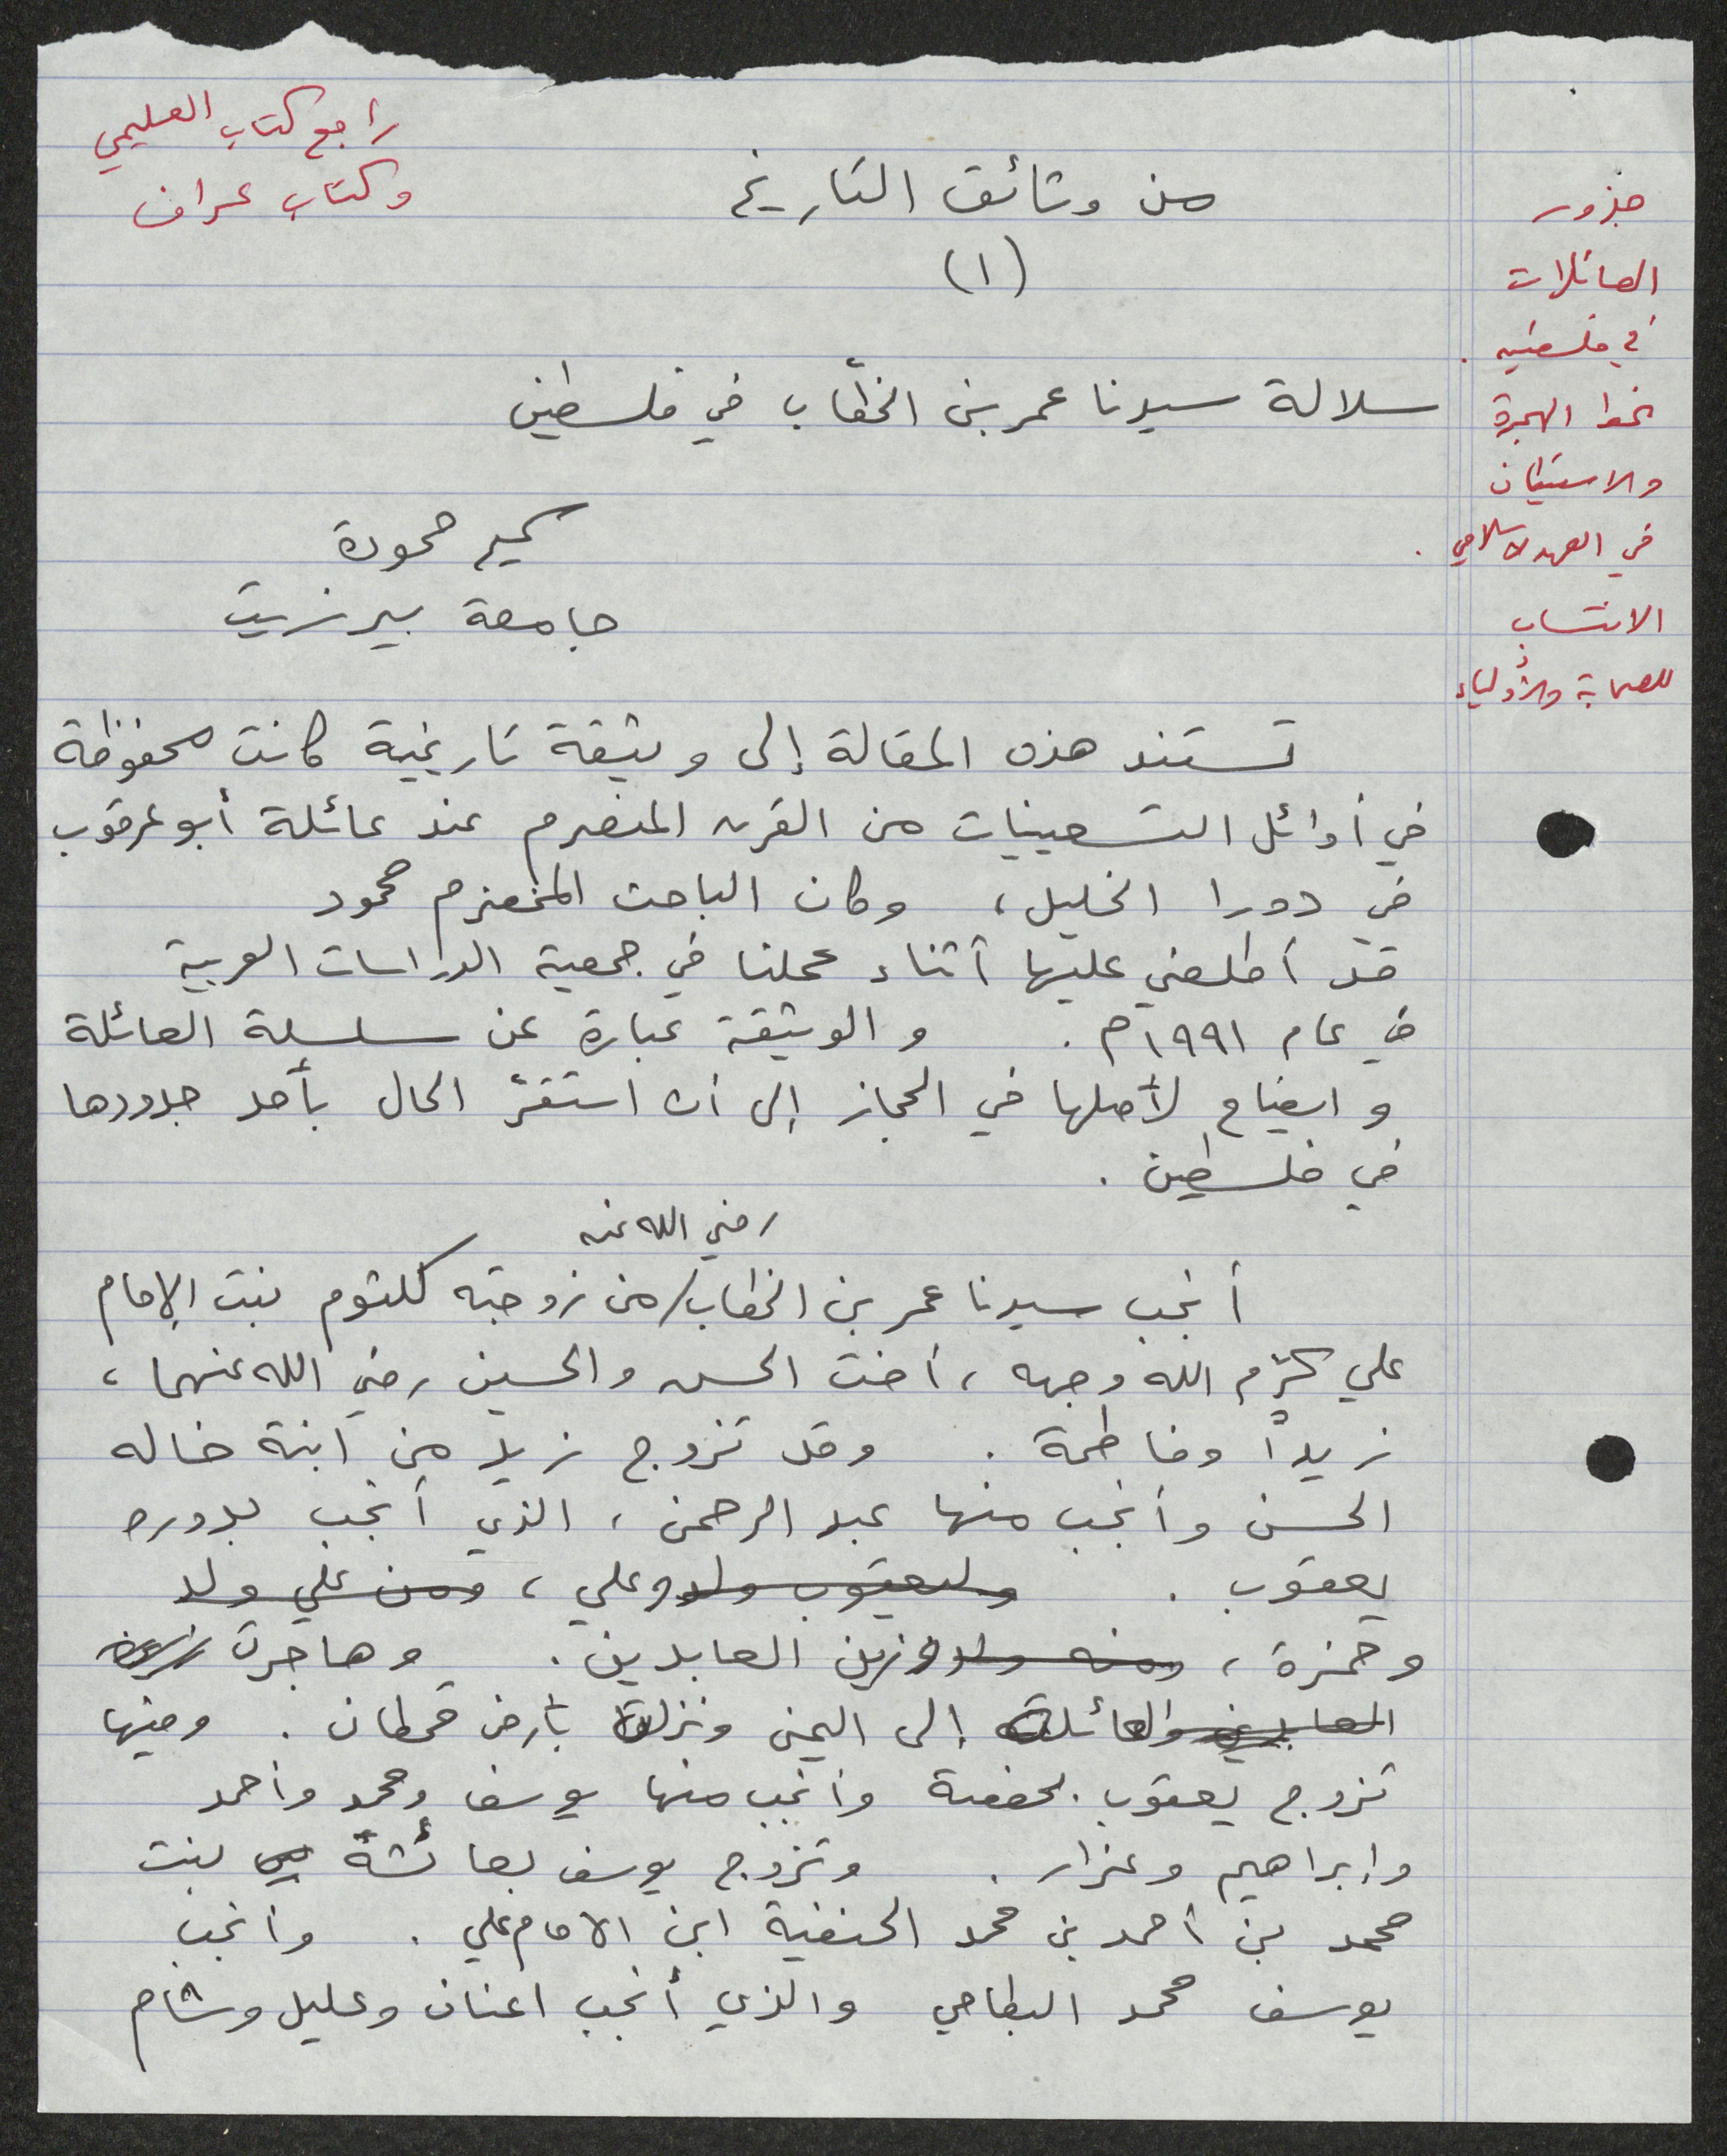 راجع كتاب العليمي
وكتاب عراف
من وثائق التاريخ
(١)
سلالة سيدنا عمر بن الخطّاب في فلسطين
سميح حمودة
جامعة بير زيت
جذور
العائلات
في فلسطين .
نمط الهجرة
والاستيطان
في العهد الاسلامي .
الانتساب
للصحابة والأولياء
تستند هذه المقالة إلى وثيقة تاريخية كانت محفوظة
في أوائل التسعينيات من القرن المنصرم عند عائلة أبو عرقوب
في دورا الخليل، وكان الباحث المخضرم محمود
قد أطلعني عليها أثناء عملنا في جمعية الدراسات العربية
في عام ١٩٩١م . والوثيقة عبارة عن سلسلة العائلة
وايضاح لأصلها في الحجاز إلى أن استقرّ الحال بأحد جدودها
في فلسطين .
رضي الله عنه
أنجب سيدنا عمر بن الخطاب/من زوجته كلثوم بنت الإمام
علي كرّم الله وجهه ، أخت الحسن والحسين رضي الله عنهما ،
زيداً وفاطمة . وقد تزوج زيد من ابنة خاله
الحسن وأنجب منها عبد الرحمن ، الذي أنجب بدوره
يعقوب . وليعقوب ولد وعلي ، ومن علي ولد
وحمزة ، ومنه ولد وزين العابدين . وهاجرت
العابدين والعائلة إلى اليمن ونزلت بأرض قحطان . وفيها
تزوج يعقوب بحفصة وأنجب منها يوسف ومحمد وأحمد
وإبراهيم وعزار . وتزوج يوسف بعائشة بنت
محمد بن أحمد بن محمد الحنفية ابن الامام علي . وأنجب
يوسف محمد البطاحي والذي أنجب اعنان وعليل وشام